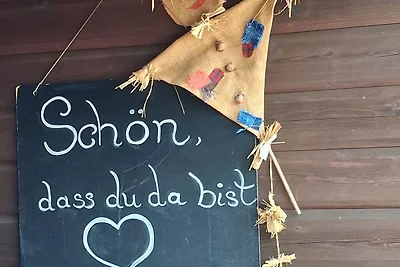 Schön,
dass du da bist